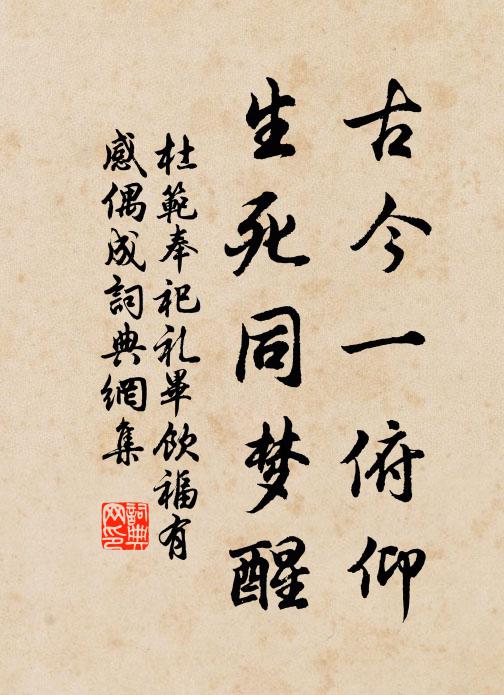 古今一俯仰
生死同梦醒
杜範奉祀礼畢飲福有
感偶成詞典網集
詞典
网印